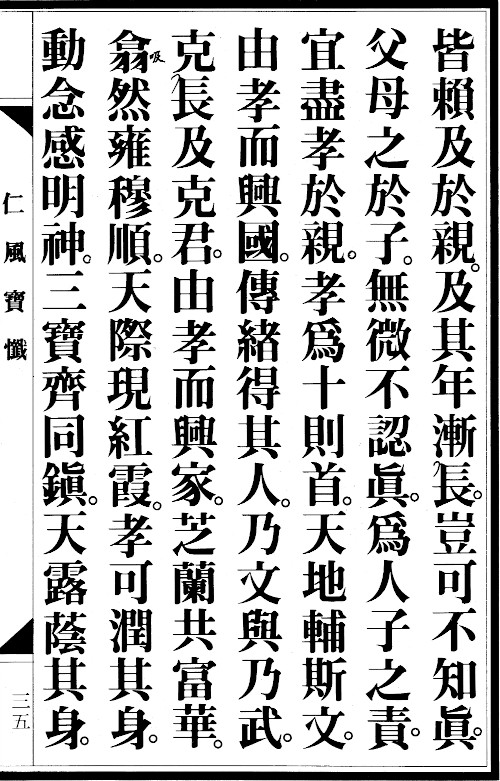 皆賴及於親。及其年漸長。豈可不知眞。
父母之於子。無微不認眞。爲人子之責。
宜盡孝於親。孝爲十則首。天地輔斯文。
由孝而興國。傳緒得其人。乃文與乃武。
克長及克君。由孝而興家。芝蘭共富華。
翕吸然雍穆順。天際現紅霞。孝可潤其身。
動念感明神。三寶齊同鎭。天露蔭其身。
仁風寶懺
三五